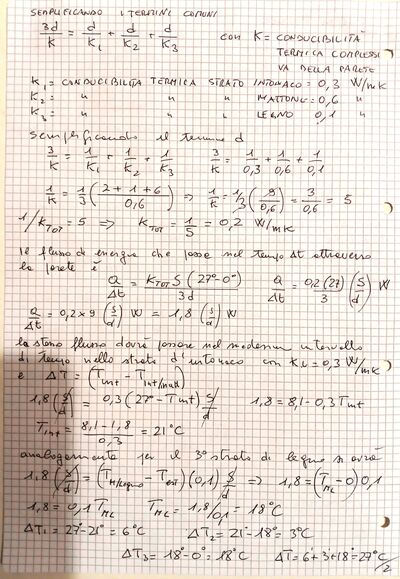 SEMPLIFICANDO I TERMINI COMUNI
3d/K = d/K₁ + d/K₂ + d/K₃ con K = CONDUCIBILITÀ
TERMICA COMPLESSI
VA DELLA PARETE
K₁ = CONDUCIBILITÀ TERMICA STRATO INTONACO = 0,3 W/mK
K₂ = " " " MATTONE = 0,6 "
K₃ = " " " LEGNO 0,1 "
Semplificando il termine d
3/K = 1/K₁ + 1/K₂ + 1/K₃ 3/K = 1/0,3 + 1/0,6 + 1/0,1
1/K = 1/3 (2+1+6/0,6) ⇒ 1/K = 1/3 (9/0,6) = 3/0,6 = 5
1/K_TOT = 5 ⇒ K_TOT = 1/5 = 0,2 W/mK
il flusso di energia che passa nel tempo Δt attraverso
la parete è
Q/Δt = K_TOT S (27°-0°)/3d Q/Δt = 0,2(27)/3 (S/d) W
Q/Δt = 0,2×9 (S/d) W = 1,8 (S/d) W
lo stesso flusso dovrà passare nel medesimo intervallo
di tempo nello strato d'intonaco con K₁ = 0,3 W/mK
e ΔT = (T_int - T_int/matt)
1,8 (S/d) = 0,3 (27° - T_int) S/d 1,8 = 8,1 - 0,3 T_int
T_int = 8,1-1,8/0,3 = 21°C
analogamente per il 3° strato di legno si avrà
1,8 (S/d) = (T_M/Legno - T_est)(0,1) S/d ⇒ 1,8 = (T_ML - 0) 0,1
1,8 = 0,1 T_ML T_ML = 1,8/0,1 = 18°C
ΔT₁ = 27°-21° = 6°C ΔT₂ = 21°-18° = 3°C
ΔT₃ = 18°-0° = 18°C ΔT = 6+3+18 = 27°C
/2